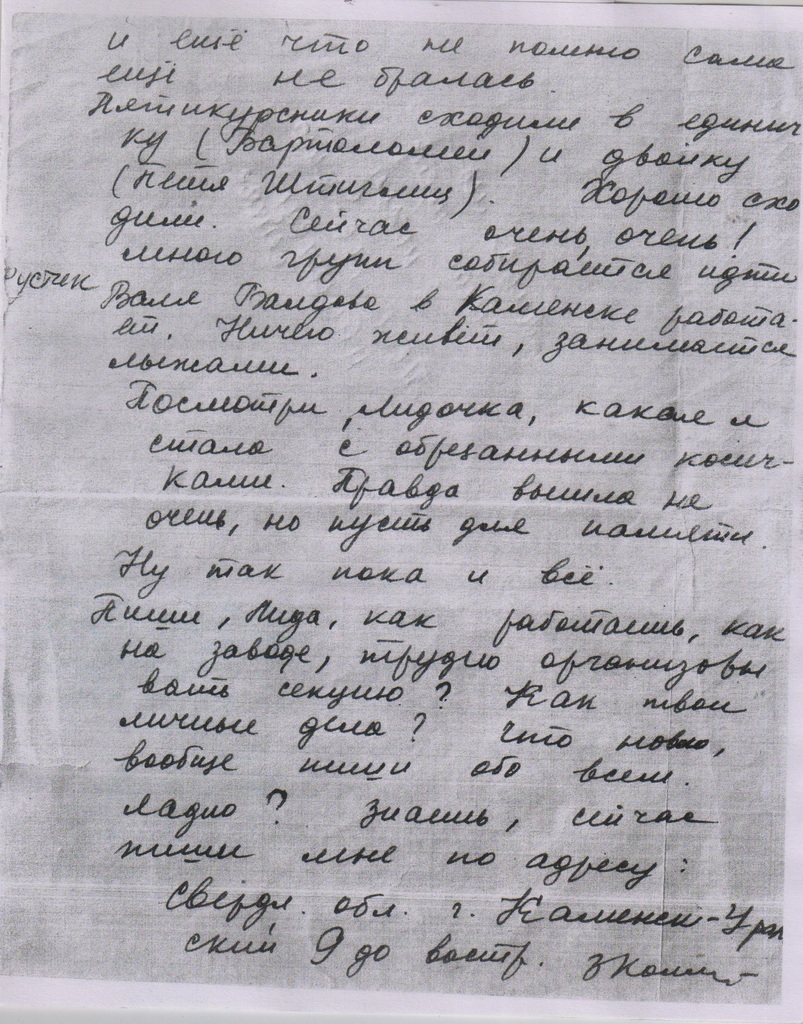 и ещё что не помню сама
ещё не бралась.
Пятикурсники сходили в единич
ку (Вартоломеи) и двойку
(Петя Штиглиц). Хорошо схо
дили. Сейчас очень, очень!
много групп собирается идти
Валя Балдова в Каменске работа-
ет. Ничего живёт, занимается
лыжами.
Посмотри, Лидочка, какая я
стала с обрезанными косич-
ками. Правда вышла не
очень, но пусть для памяти.
Ну так пока и всё.
Пиши, Лида, как работаешь, как
на заводе, трудно организовы
вать секцию? Как твои
личные дела? Что ново,
вообще пиши обо всем.
Ладно? Знаешь, сейчас
пиши мне по адресу:
Свердл. обл. г. Каменск-Урал
ский Я до востр.